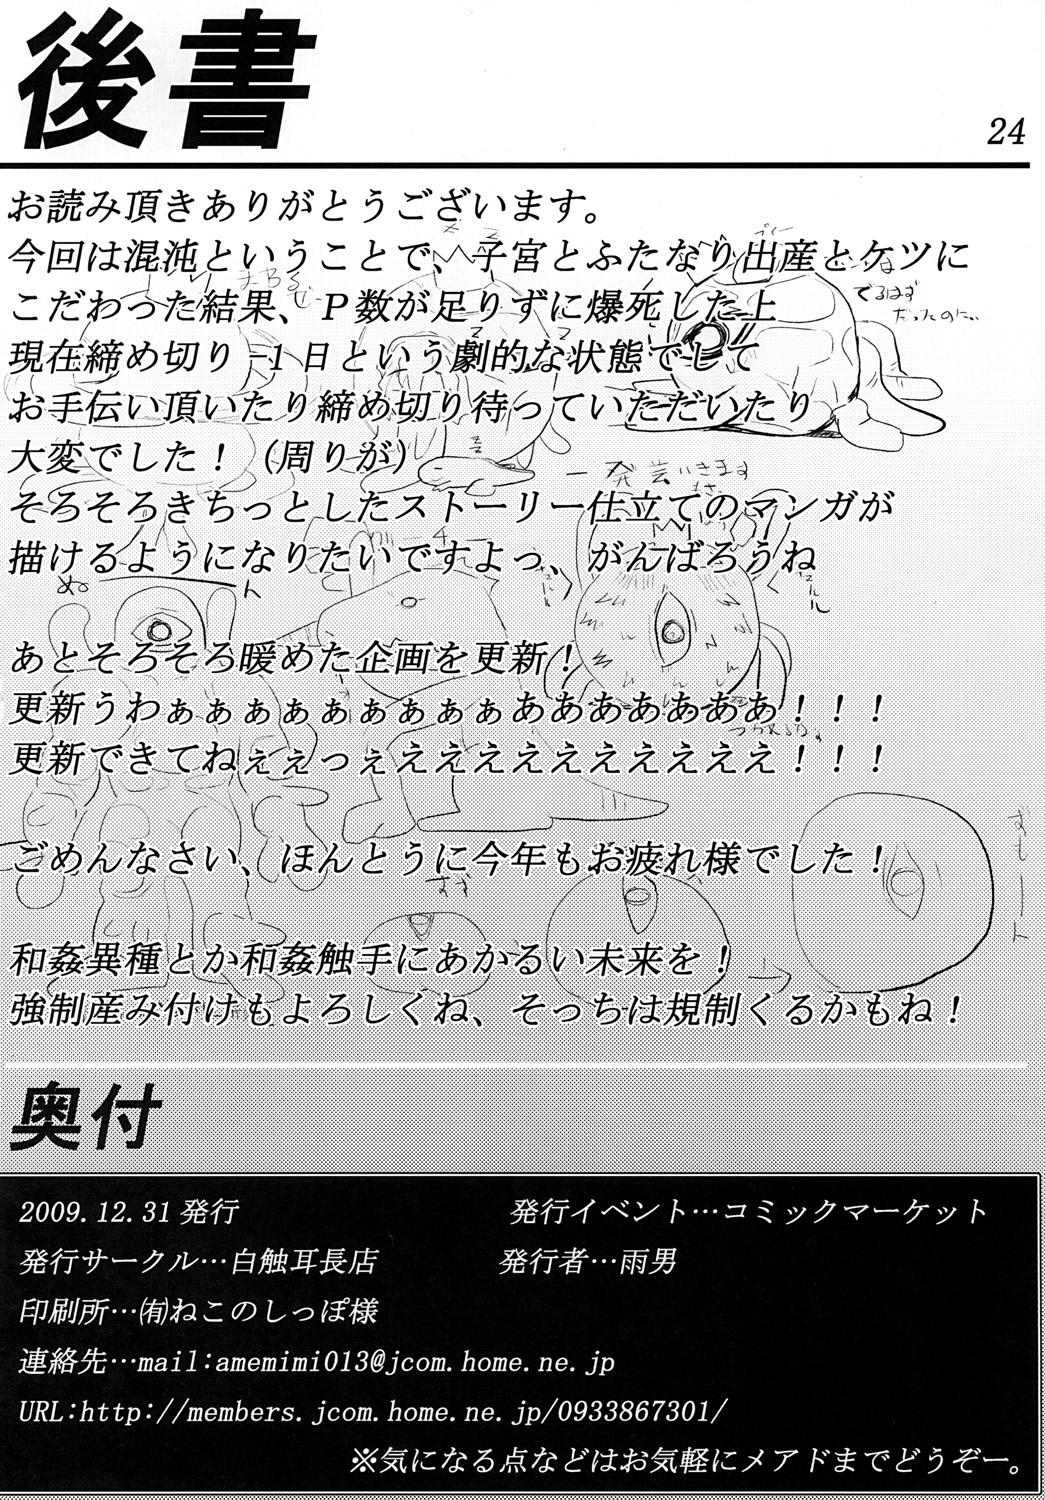 後書
24
お読み頂きありがとうございます。
今回は混沌ということで、子宮とふたなり出産とケツに
こだわった結果、P数が足りずに爆死した上
現在締め切り-1日という劇的な状態でして
お手伝い頂いたり締め切り待っていただいたり
大変でした！（周りが）
そろそろきちっとしたストーリー仕立てのマンガが
描けるようになりたいですよっ、がんばろうね
あとそろそろ暖めた企画を更新！
更新うわぁぁぁぁぁぁぁぁぁあああああああ！！！
更新できてねぇぇっぇええええええええええ！！！
ごめんなさい、ほんとうに今年もお疲れ様でした！
和姦異種とか和姦触手にあかるい未来を！
強制産み付けもよろしくね、そっちは規制くるかもね！
でるはず
だったのに…
一発芸いきます
ぬ ん
ずもーん
奥付
2009.12.31発行 発行イベント…コミックマーケット
発行サークル…白触耳長店 発行者…雨男
印刷所…㈲ねこのしっぽ様
連絡先…mail:amemimi013@jcom.home.ne.jp
URL:http://members.jcom.home.ne.jp/0933867301/
※気になる点などはお気軽にメアドまでどうぞー。